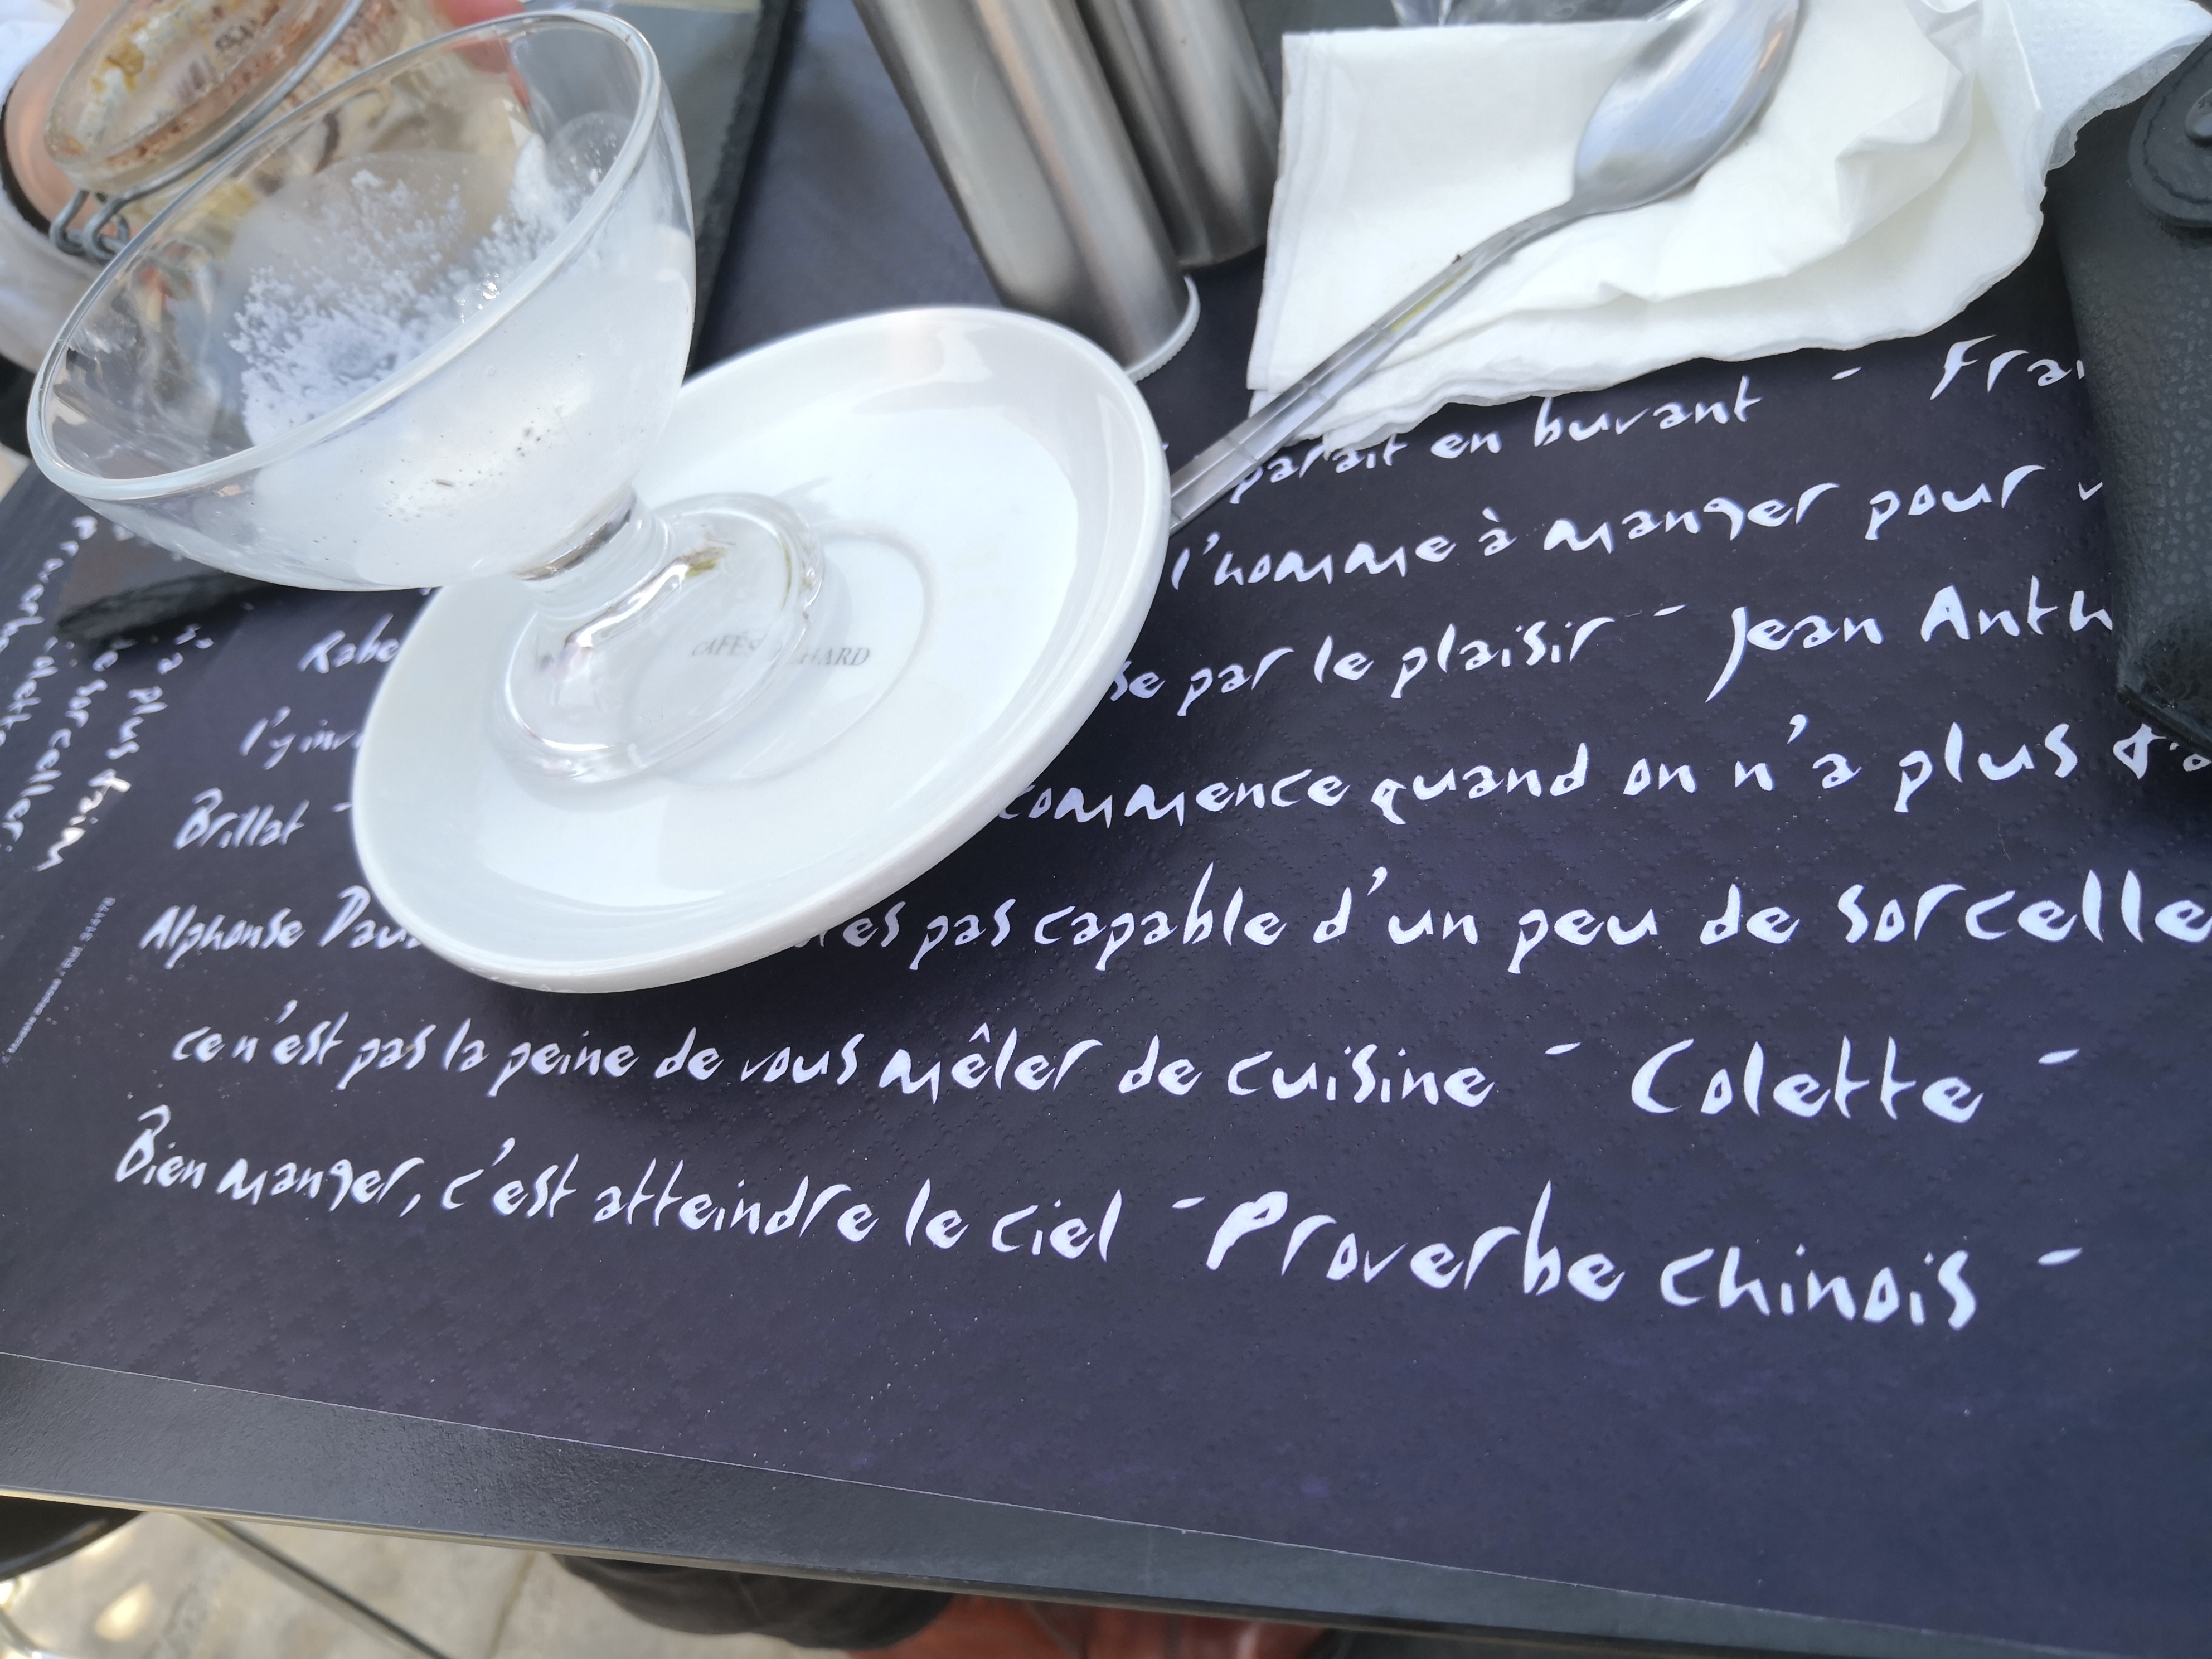 parait en buvant - Fra
l'homme à manger pour
Rabe
se par le plaisir - Jean Anth
l'y inv
commence quand on n'a plus
Brillat -
Alphonse Dau
res pas capable d'un peu de sorcelle
ce n'est pas la peine de vous mêler de cuisine - Colette -
Bien manger, c'est atteindre le ciel - Proverbe chinois -
CAFÉS HARD
n'a plus faim
de sorceller